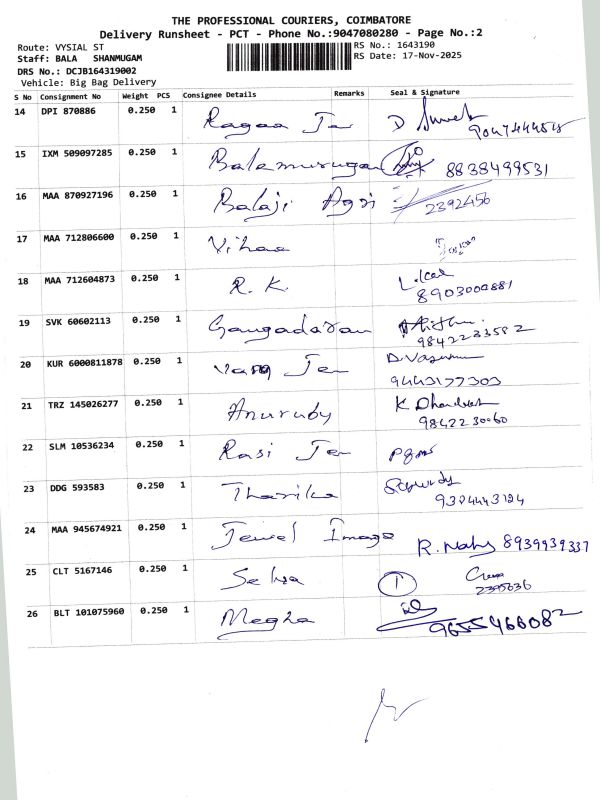 THE PROFESSIONAL COURIERS, COIMBATORE
Delivery Runsheet - PCT - Phone No.:9047080280 - Page No.:2
Route: VYSIAL ST
RS No.: 1643190
Staff: BALA SHANMUGAM
RS Date: 17-Nov-2025
DRS No.: DCJB164319002
Vehicle: Big Bag Delivery
S No Consignment No Weight PCS Consignee Details Remarks Seal & Signature
14 DPI 870886 0.250 1 Ragaa
15 IXM 509097285 0.250 1 Balamurugan 8838499531
16 MAA 870927196 0.250 1 Balaji Agri 2392456
17 MAA 712806600 0.250 1 Vihaa
18 MAA 712604873 0.250 1 R. K.
8903000881
19 SVK 60602113 0.250 1 Gangadaran
9842233582
20 KUR 6000811878 0.250 1
9443177303
21 TRZ 145026277 0.250 1 Anuruby K
9842230060
22 SLM 10536234 0.250 1 Rasi
23 DDG 593583 0.250 1 Tharika
24 MAA 945674921 0.250 1 Jewel Image R. 8939939337
25 CLT 5167146 0.250 1 Selva 1
2395636
26 BLT 101075960 0.250 1 Megha
9655466082